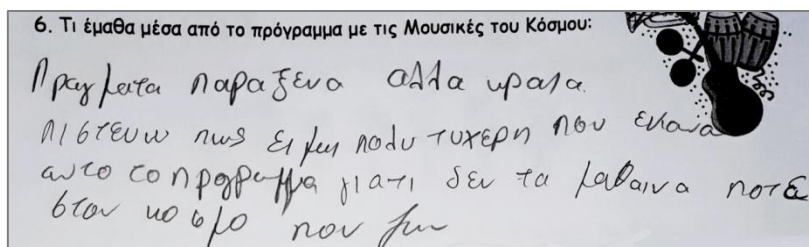 6. Τι έμαθα μέσα από το πρόγραμμα με τις Μουσικές του Κόσμου:
Πραγματα παραξενα αλλα ωραια.
πιστευω πως ειμαι πολυ τυχερη που εκανα
αυτο το προγραμμα γιατι δεν τα μαθαινα ποτέ
στον κοσμο που ζω